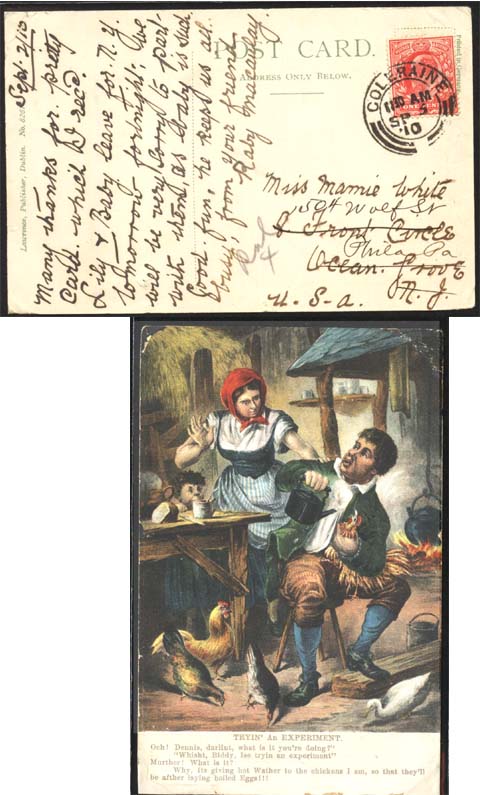 Sept. 2/10
Many thanks for pretty
card which I rec'd.
Lily & Baby leave for N.Y.
tomorrow fortnight. We
will be very sorry to part
with them as baby is such
Good fun, he keeps us all
busy, from your friend
Lawrence, Publisher, Dublin. No.
POST CARD.
ADDRESS ONLY BELOW.
Printed in
COLERAINE
11 30 AM
SP
10
ONE PENNY
Miss Mamie White
1504 Wolf St
Front Circle
Phila Pa
Ocean Grove
N. J.
U. S. A.
TRYIN' An EXPERIMENT.
Och! Dennis, darlint, what is it you're doing?"
"Whisht, Biddy, Ise tryin an experiment"
Murther! What is it?
Why, Its giving hot Wather to the chickens I am, so that they'll
be afther laying boiled Eggs!!!